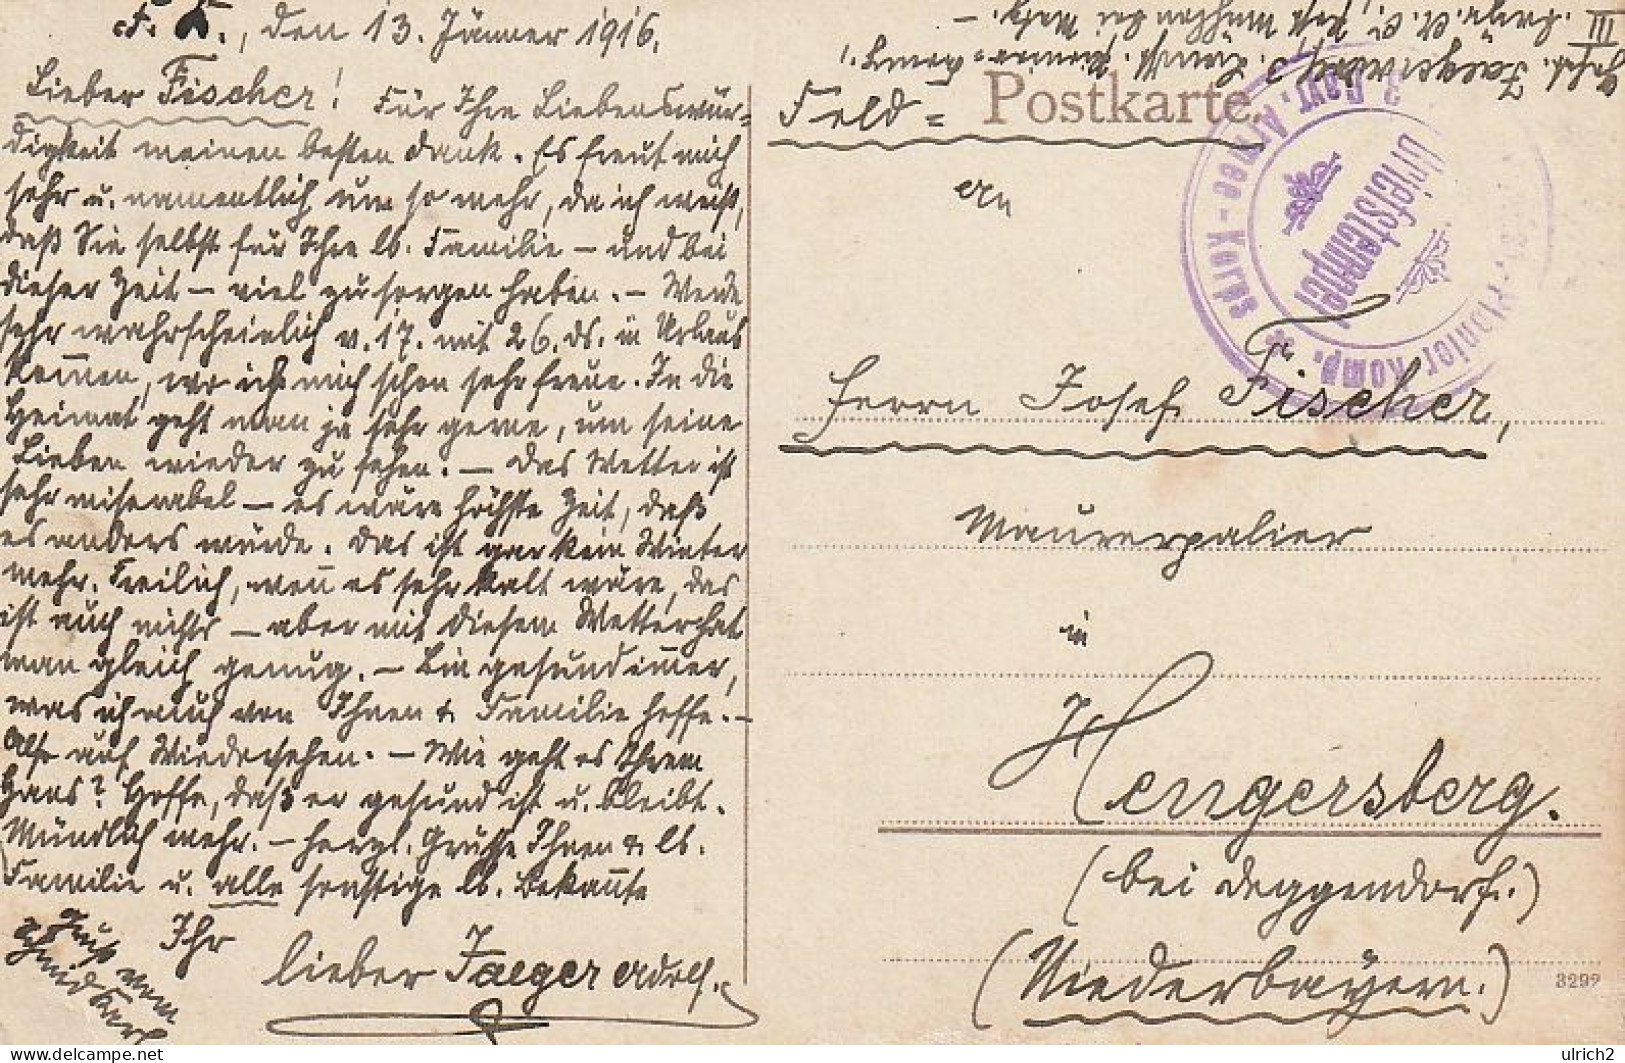 F. K., den 13. Jänner 1916.
Lieber Fischer! Für Ihre Liebenswür-
digkeit meinen besten Dank. Es freut mich
sehr u. namentlich um so mehr, da ich weiß,
daß Sie selbst für Ihre lb. Familie – und bei
dieser Zeit – viel zu sorgen haben. – Werde
sehr wahrscheinlich v. 17. mit 26. ds. in Urlaub
kommen, wo ich mich schon sehr freue. In die
Heimat geht man ja sehr gerne, um seine
Lieben wieder zu sehen. – Das Wetter ist
sehr miserabel – es wäre höchste Zeit, daß
es anders würde. Das ist gar kein Winter
mehr. Freilich, wenn es sehr kalt wäre, das
ist auch nichts – aber mit diesem Wetter hat
man gleich genug. – Bin gesund immer,
was ich auch von Ihnen & Familie hoffe. –
Also auf Wiedersehen. – Wie geht es Ihrem
Hans? Hoffe, daß er gesund ist u. bleibt.
Mündlich mehr. – Herzl. Grüße Ihnen & lb.
Familie u. alle sonstige lb. Bekannte
Ihr
lieber Jaeger Adolf.
Gruß vom
Schmid
Feld = Postkarte.
an
Herrn Josef Fischer,
Maurerpalier
in
Hengersberg.
(bei Deggendorf.)
(Niederbayern.)
3. Bayr. Armee-Korps
Pionier Komp.
Briefstempel
3292
ulrich2